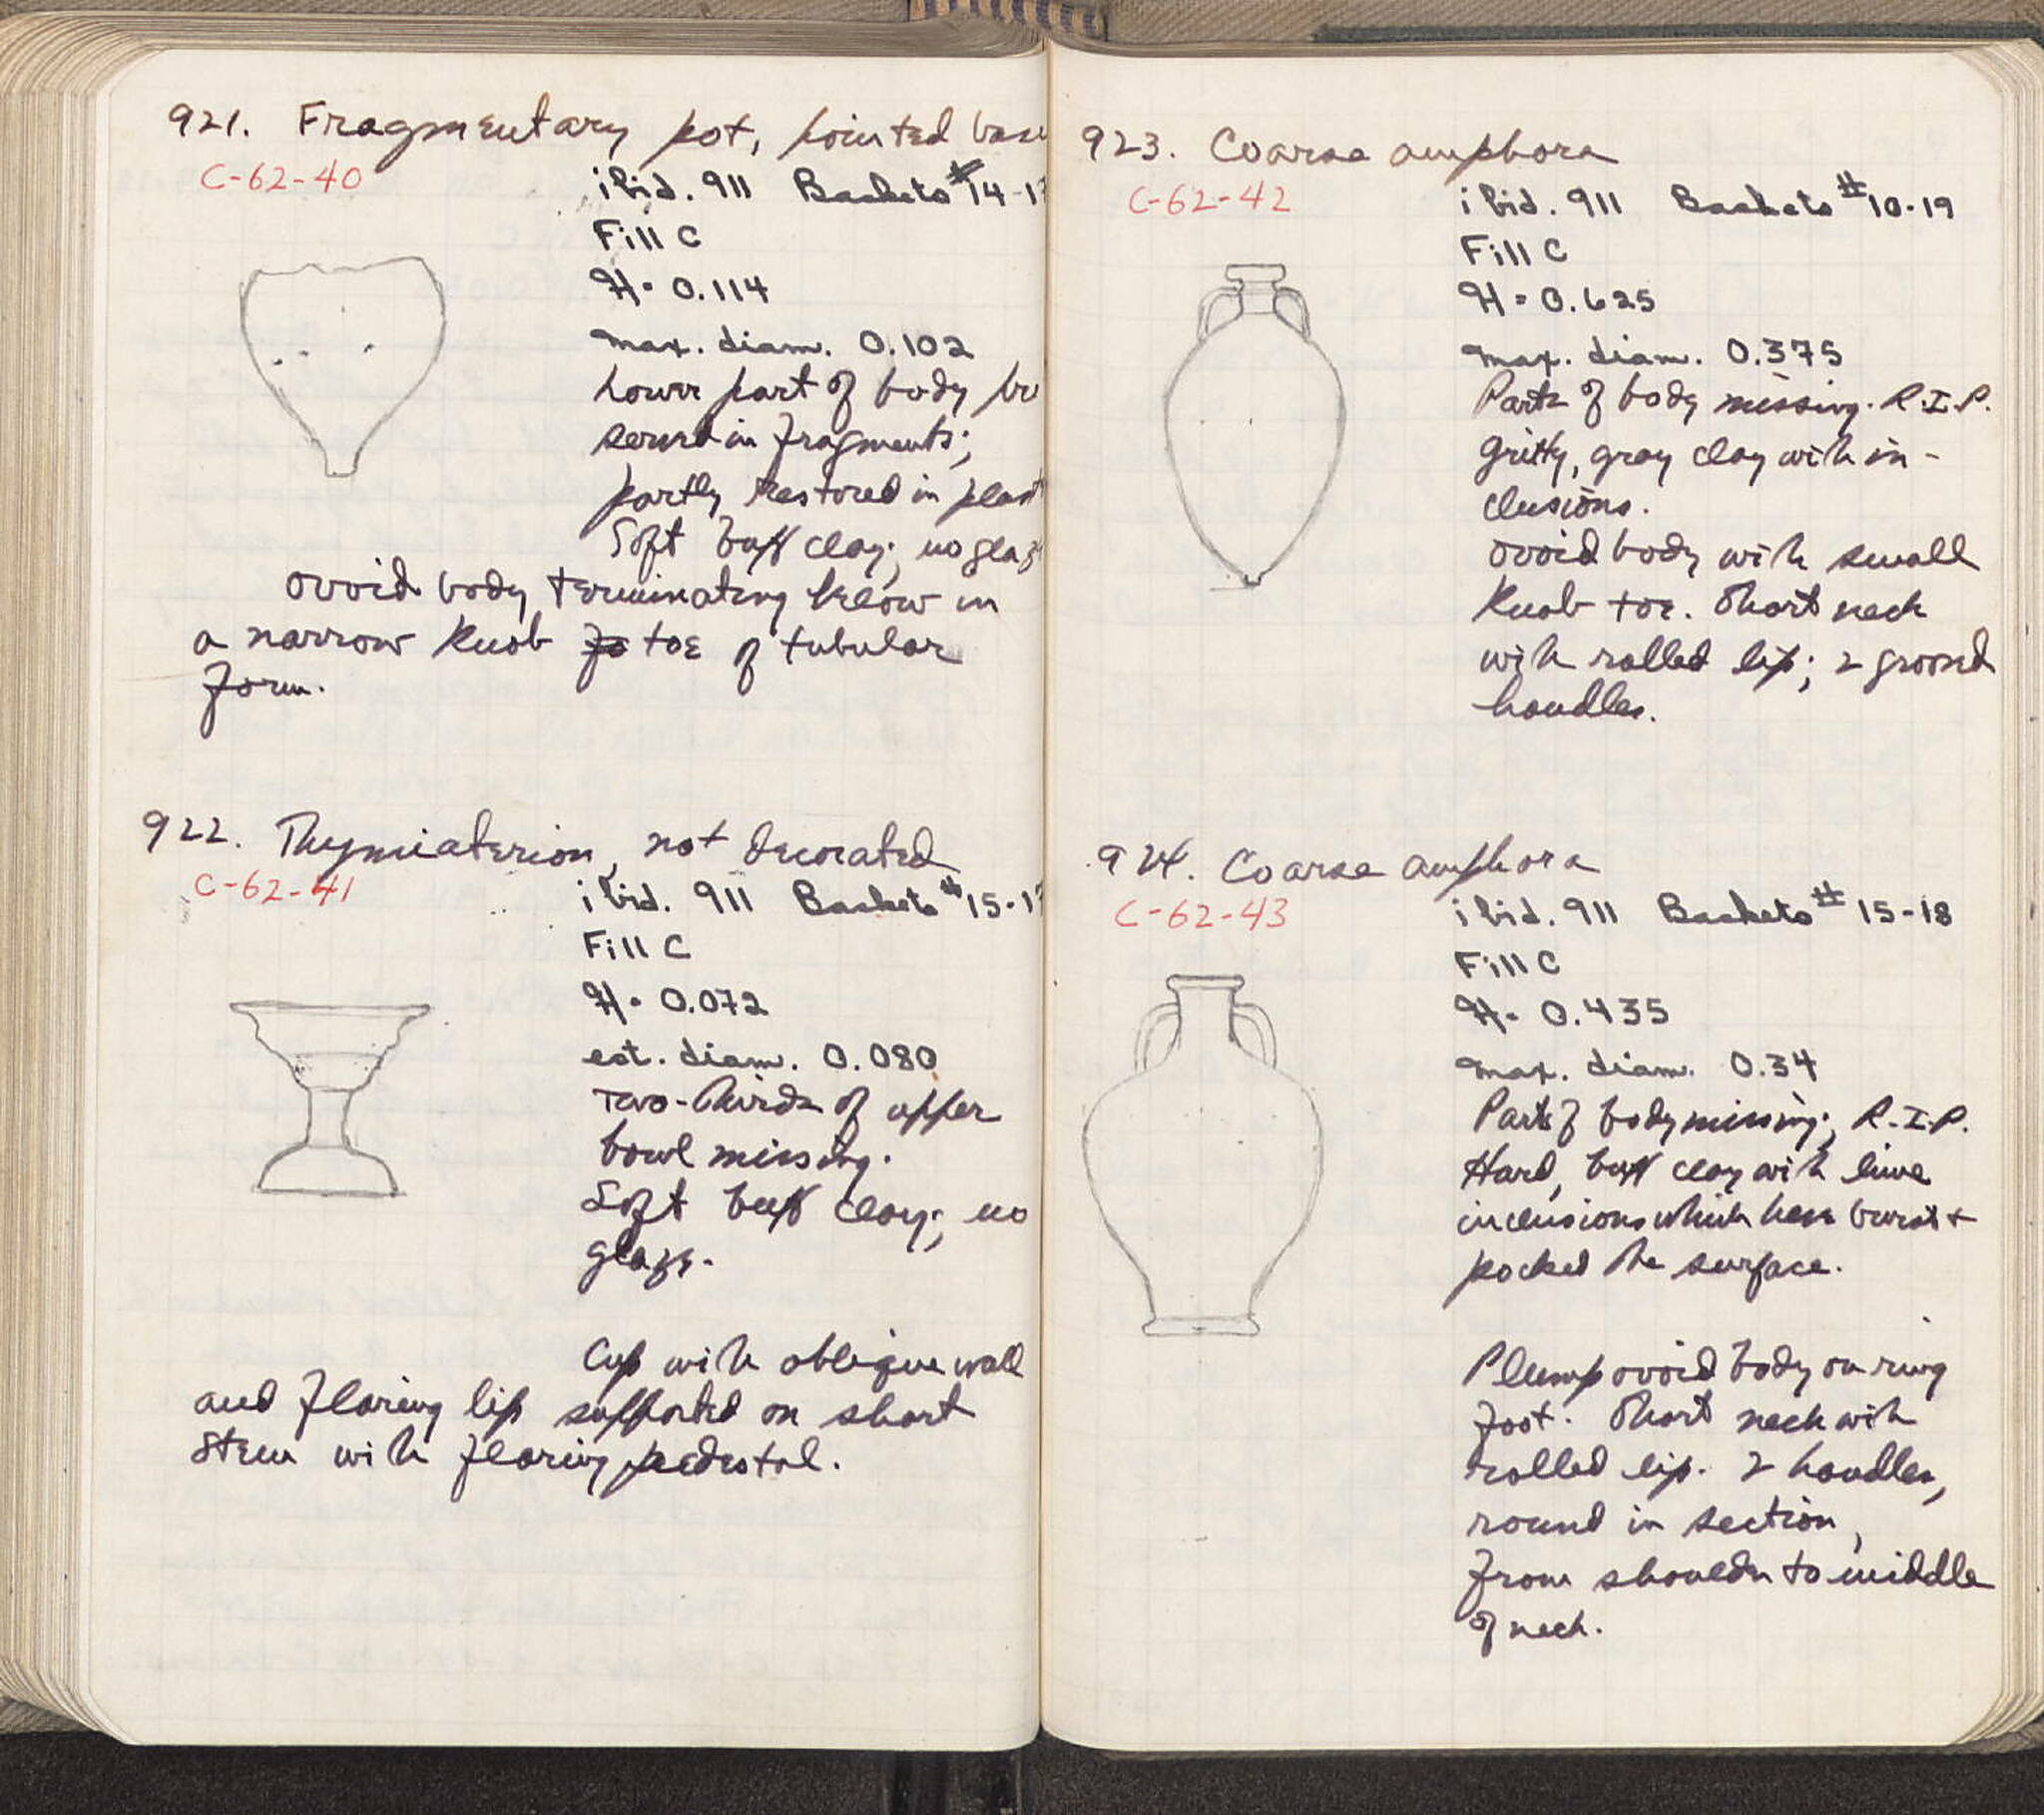 921. Fragmentary pot, pointed base
C-62-40
ibid. 911 Baskets #14-1
Fill C
H = 0.114
max. diam. 0.102
Lower part of body
in fragments;
partly restored in plast
Soft buff clay; no glaz
ovoid body terminating below in
a narrow knob toe of tubular
form.
922. Thymiaterion, not decorated
C-62-41
ibid. 911 Baskets #15-1
Fill C
H = 0.072
est. diam. 0.080
Two-thirds of upper
bowl missing.
Soft buff clay; no
glaze.
Cup with oblique wall
and flaring lip supported on short
stem with flaring pedestal.
923. Coarse amphora
C-62-42
ibid. 911 Baskets #10-19
Fill C
H = 0.625
max. diam. 0.375
Parts of body missing. R.I.P.
Gritty, gray clay with in-
clusions.
ovoid body with small
knob toe. Short neck
with rolled lip; 2 grooved
handles.
924. Coarse amphora
C-62-43
ibid. 911 Baskets # 15-18
Fill C
H = 0.435
max. diam. 0.34
Part of body missing; R.I.P.
Hard, buff clay with lime
inclusions which have burst +
pocked the surface.
Plump ovoid body on ring
foot. Short neck with
rolled lip. 2 handles,
round in section,
from shoulder to middle
of neck.